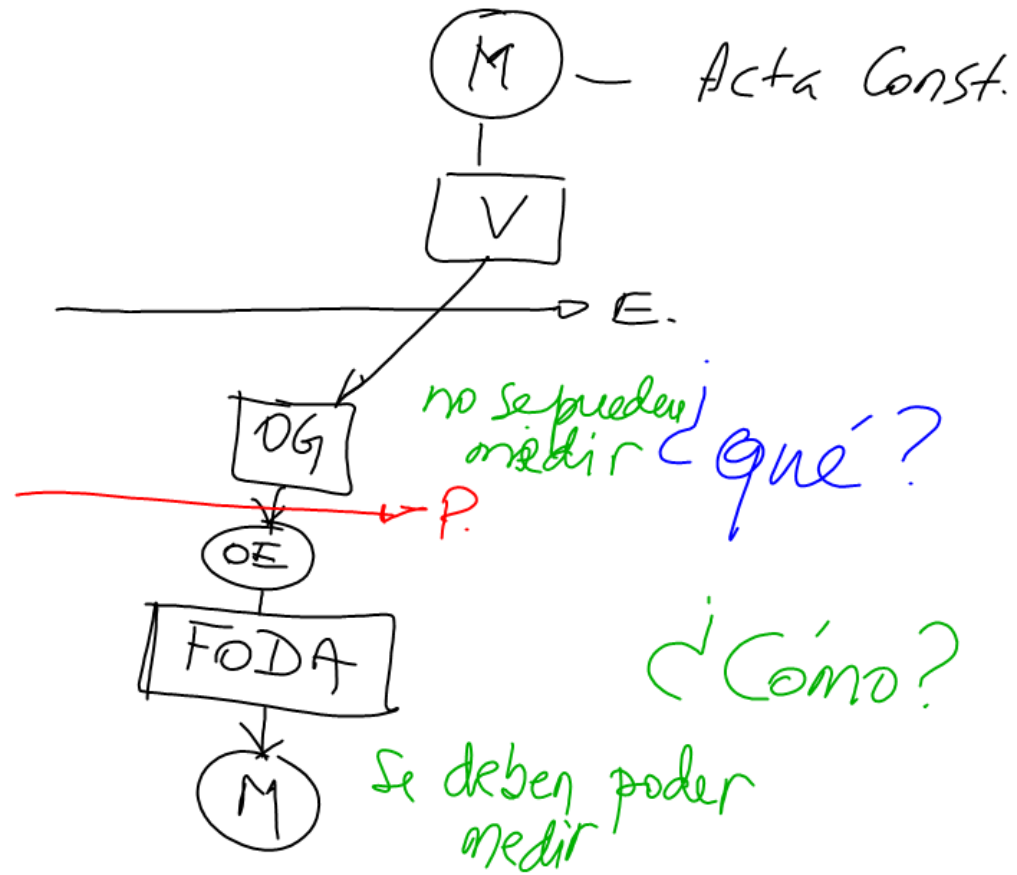 M — Acta Const.
V
E.
OG
no se pueden
medir
¿qué?
P.
OE
FODA
¿Cómo?
M
Se deben poder
medir